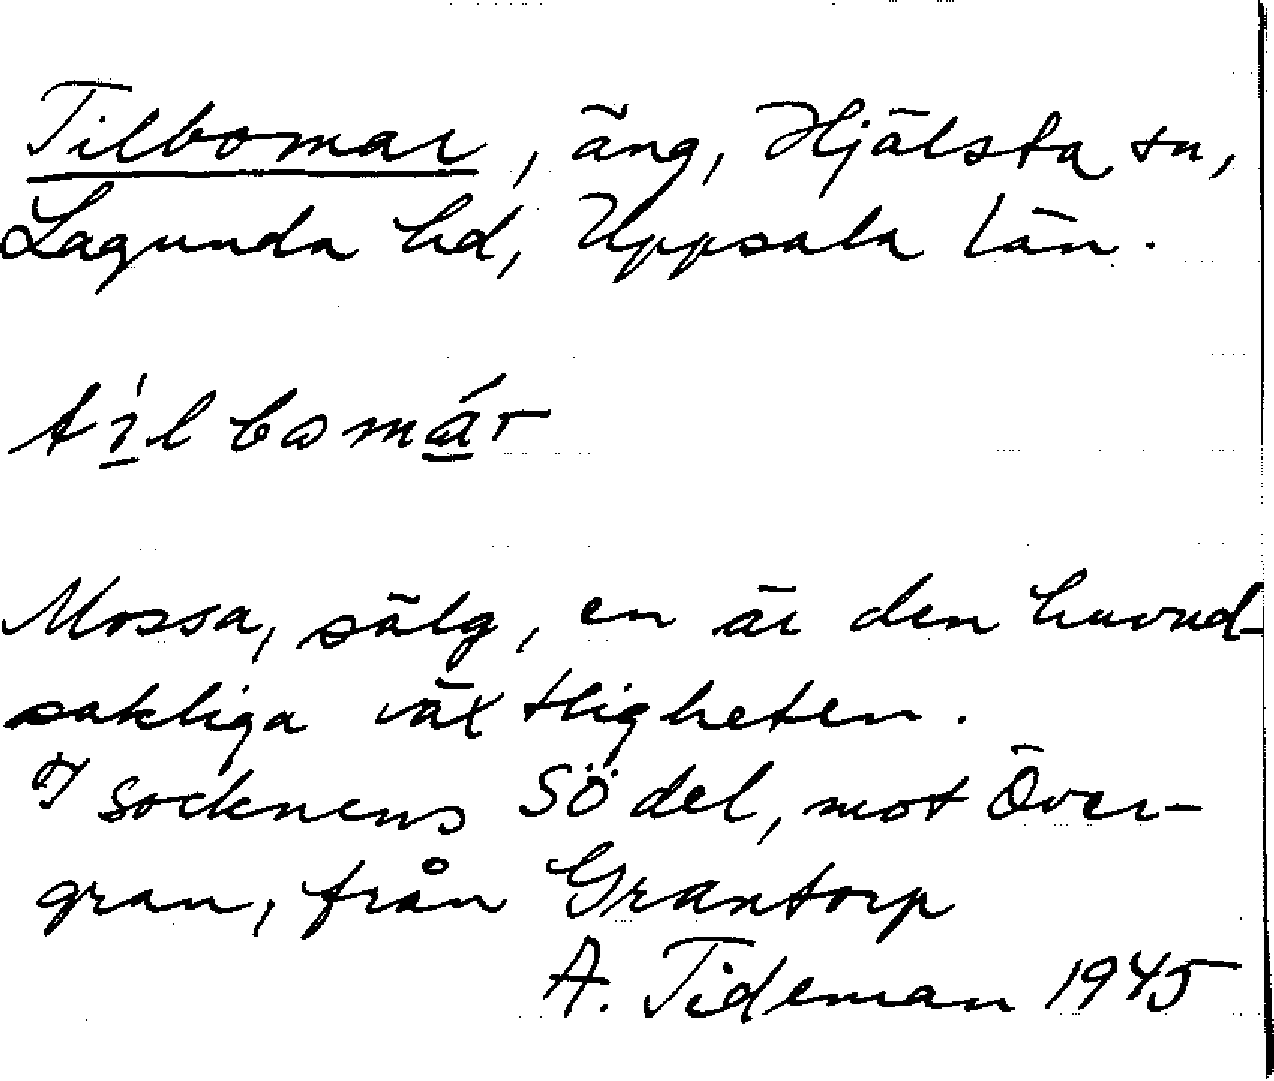 Tilbomar, äng, Hjälsta sn,
Lagunda hd, Uppsala län.
tílbomár
Mossa, sälg, en är den huvud-
sakliga växtligheten.
I socknens SÖ del, mot Över-
gran, från Grantorp
A. Tideman 1945